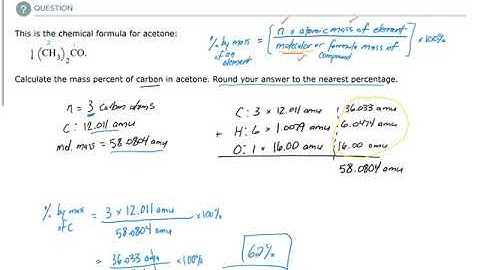 QUESTION
This is the chemical formula for acetone:
1 (CH₃)₂CO.
% by mass of an element = [ n × atomic mass of element / molecular or formula mass of compound ] × 100%
Calculate the mass percent of carbon in acetone. Round your answer to the nearest percentage.
n = 3 carbon atoms
C: 12.011 amu
mol. mass = 58.0804 amu
C: 3 × 12.011 amu 36.033 amu
+ H: 6 × 1.0079 amu 6.0474 amu
O: 1 × 16.00 amu 16.00 amu
58.0804 amu
% by mass of C = 3 × 12.011 amu / 58.0804 amu × 100%
= 36.033 amu × 100%
62%